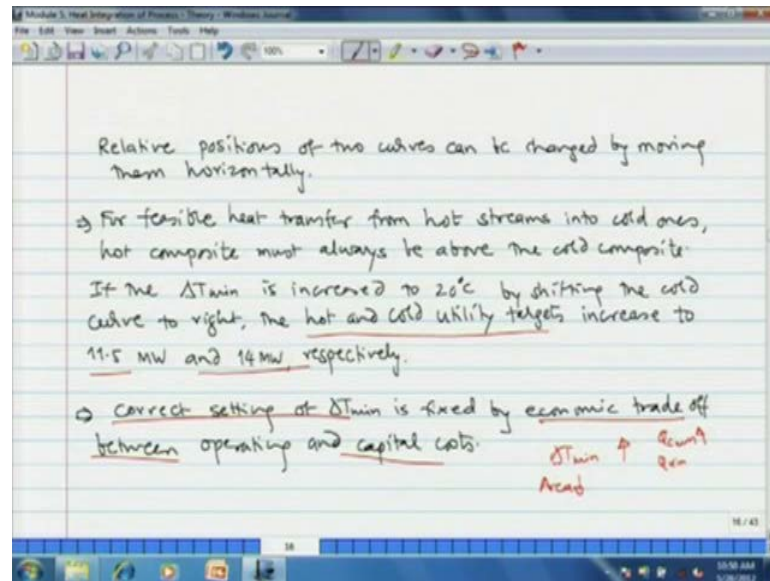 Module 5: Heat Integration of Process - Theory - Windows Journal
File Edit View Insert Actions Tools Help
100%
Relative positions of two curves can be changed by moving
them horizontally.
⇒ For feasible heat transfer from hot streams into cold ones,
hot composite must always be above the cold composite.
If the ΔTmin is increased to 20°C by shifting the cold
curve to right, the hot and cold utility targets increase to
11.5 MW and 14 MW, respectively.
⇒ Correct setting of ΔTmin is fixed by economic trade off
between operating and capital costs.
ΔTmin ↑
16 / 43
16
10:50 AM